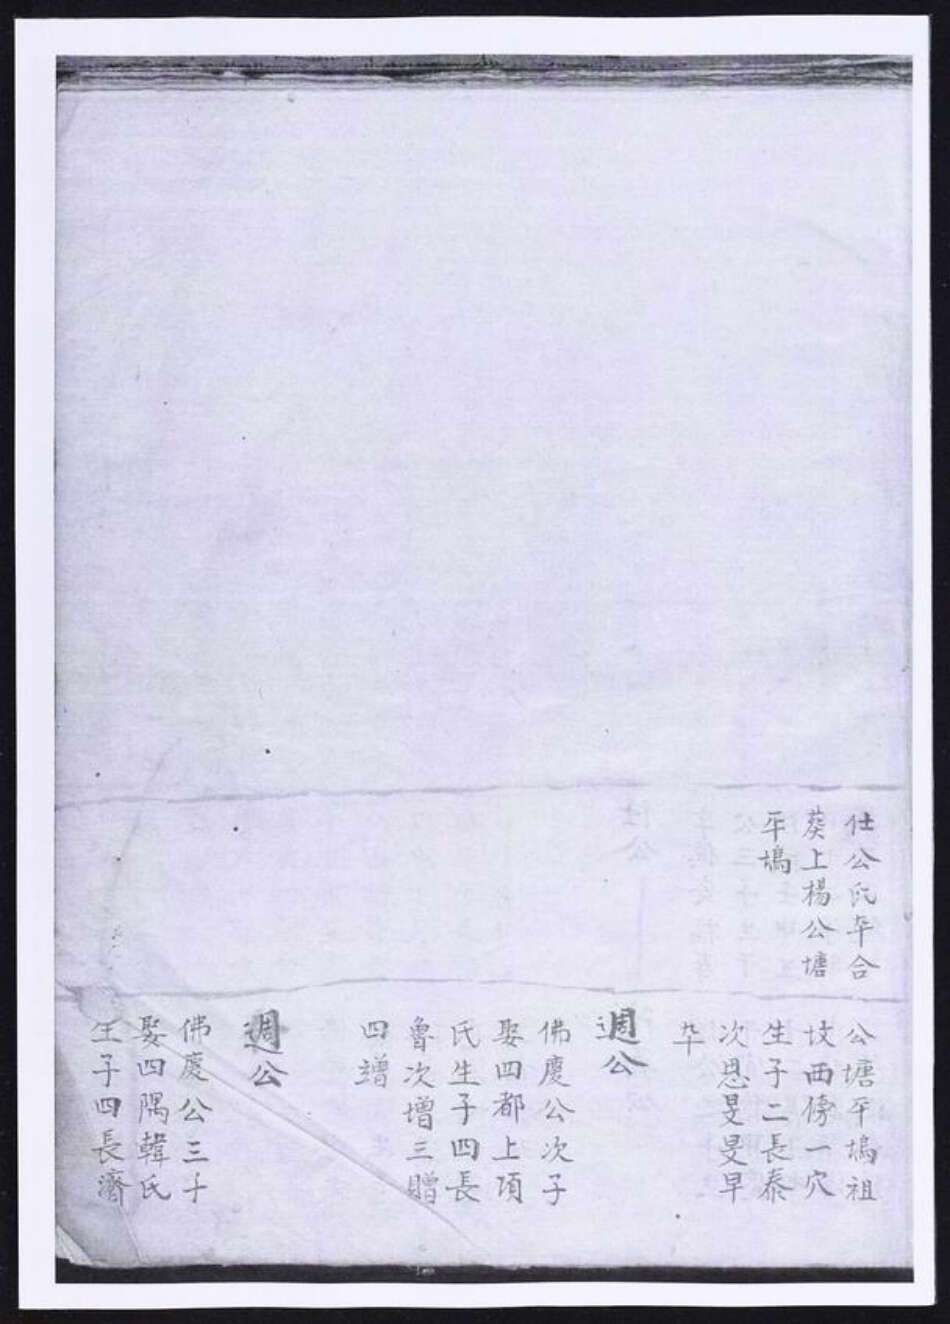 仕公氏卒合
葵上楊公塘
平塢
公塘平塢祖
坟西傍一穴
生子二長泰
次恩旻旻早
卒
週公
佛慶公次子
娶四都上項
氏生子四長
魯次增三贈
四增
週公
佛慶公三子
娶四隅韓氏
生子四長濟